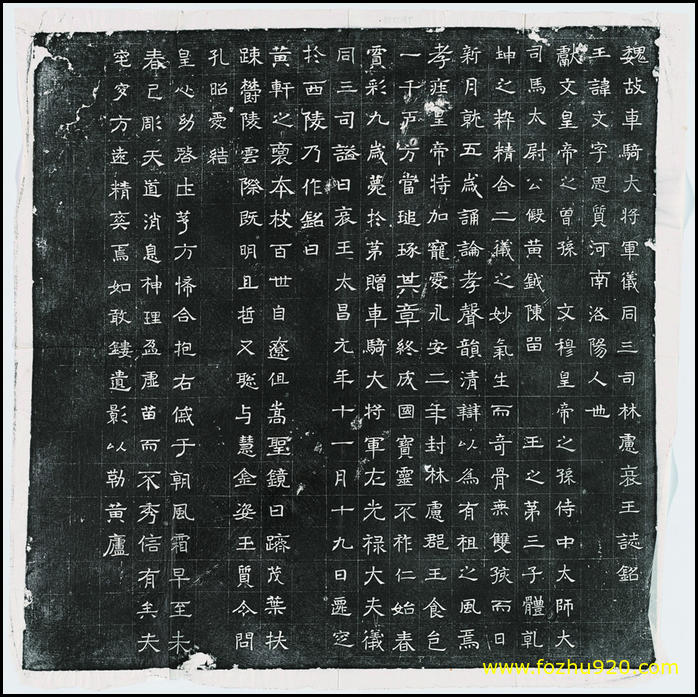 魏故車騎大将軍儀同三司林慮哀王誌銘
王諱文字思質河南洛陽人也
獻文皇帝之曾孫 文穆皇帝之孫侍中太師大
司馬太尉公假黄鉞陳留 王之第三子體乹
坤之粹精含二儀之妙氣生而奇骨無雙孩而日
新月就五歳誦論孝聲韻清辯以為有祖之風焉
孝莊皇帝特加寵愛永安二年封林慮郡王食邑
一千戸方當琢其章終成國寶靈不祚仁始春
實彩九歳薨扵第贈車騎大将軍左光禄大夫儀
同三司謚曰哀王太昌元年十一月十九日遷窆
扵西陵乃作銘曰
黄軒之裔本枝百世自遼徂嵩聖鏡日躋茂葉扶
踈欝陵雲際既明且哲又聡与慧金姿玉質令問
孔昭愛結
皇心幼啓土茅方悕合抱右戚于朝風霜早至未
春已彫天道消息神理盈虚苗而不秀信有矣夫
窀穸方遠精爽焉如敢鏤遺影以勒黄廬
www.fozhu920.com